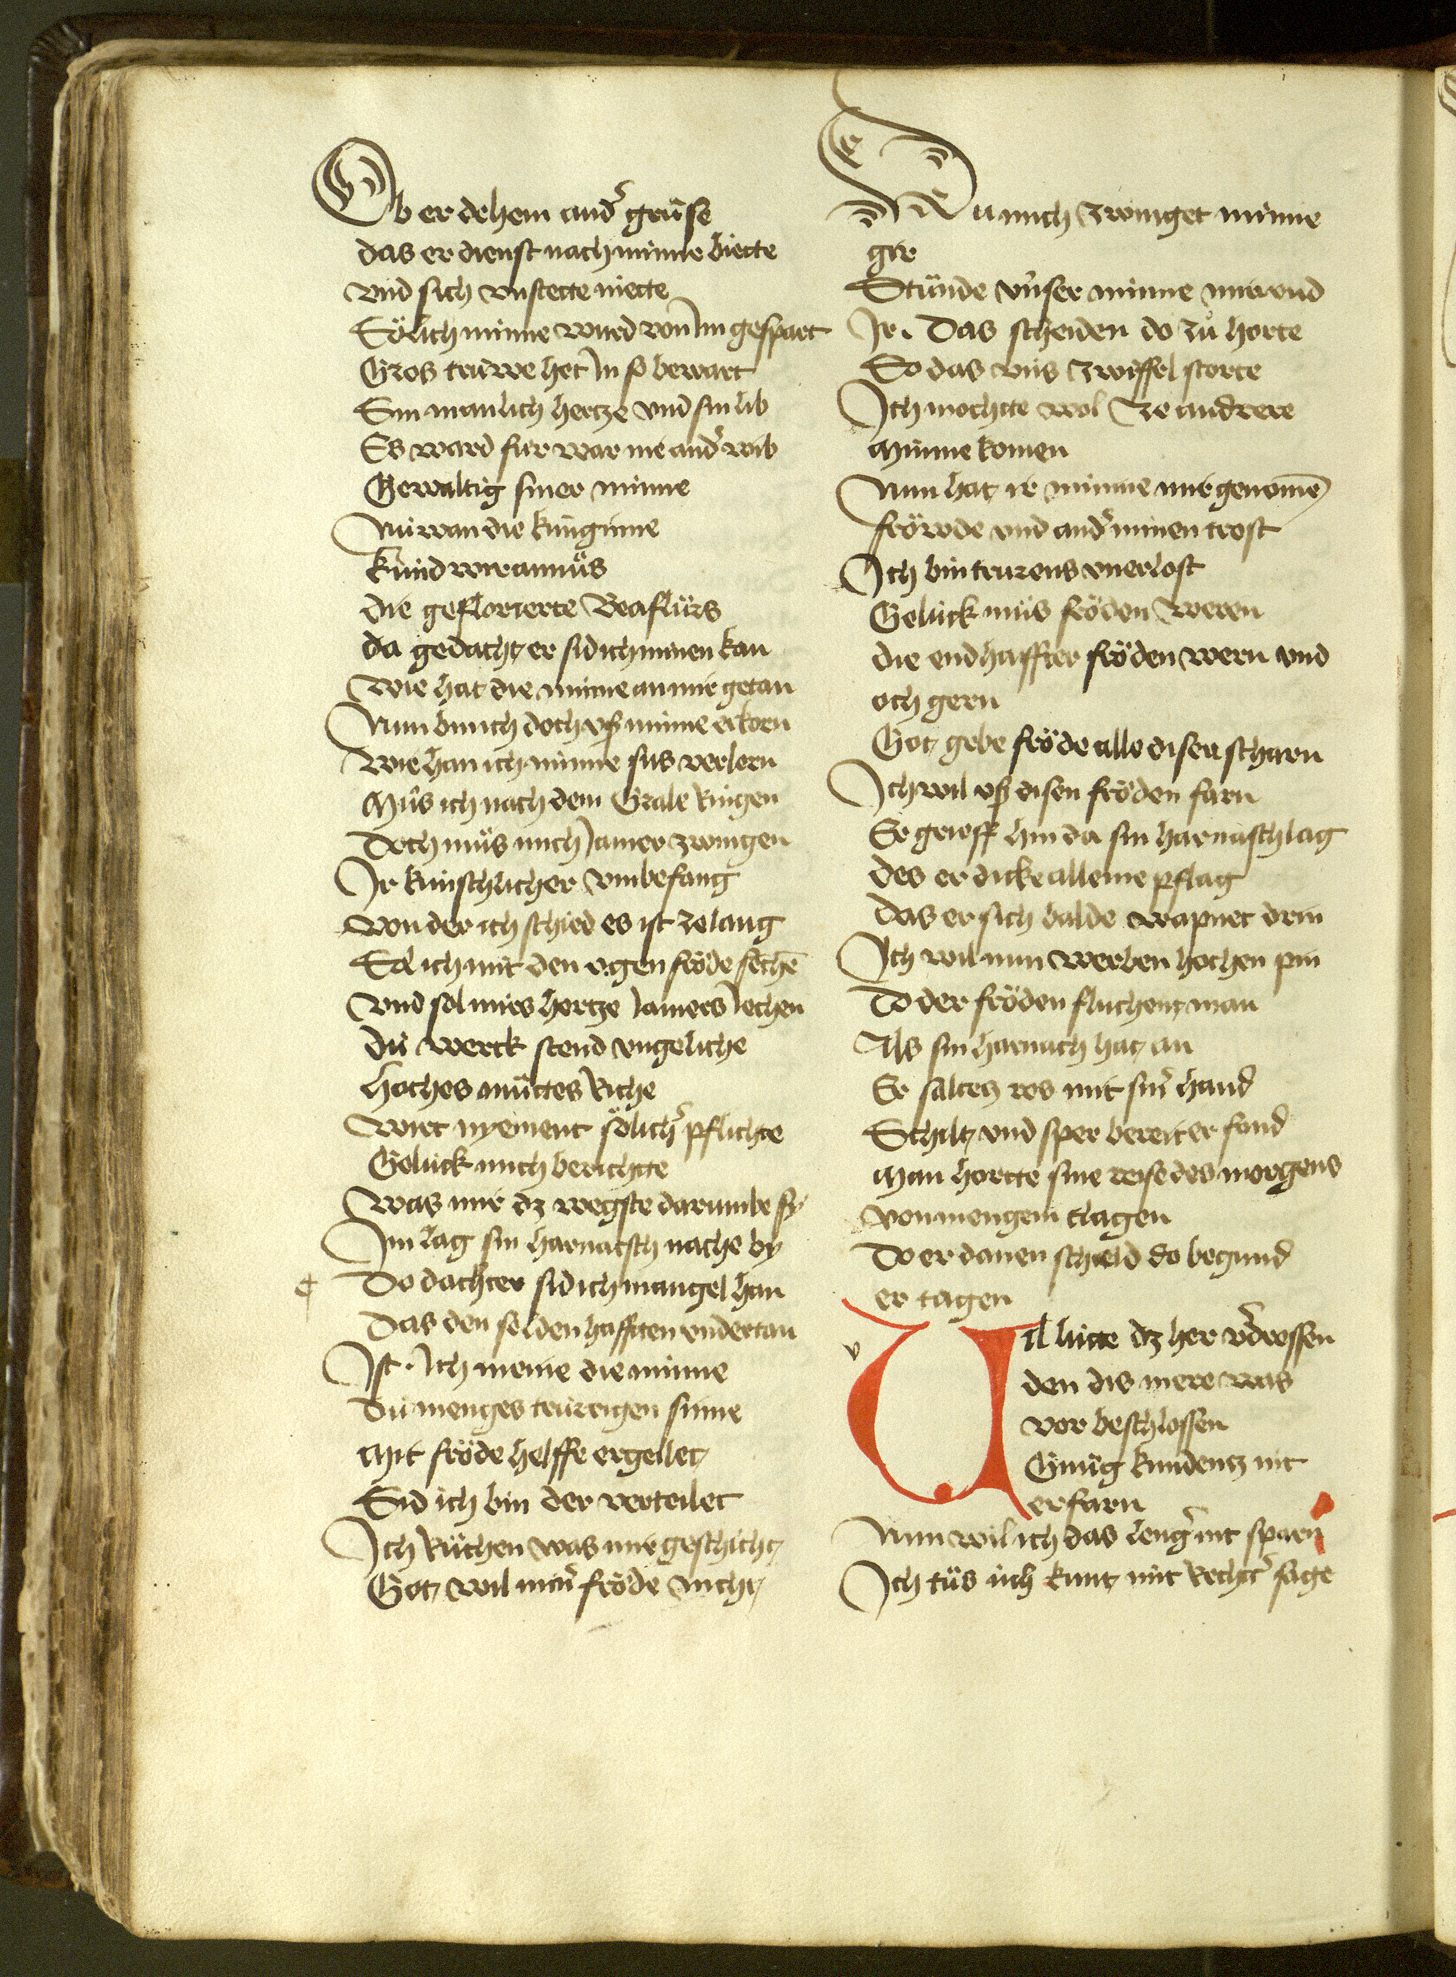 Ob er dehein andˀ grůse
das er dienst nach minne biette
vnd sich vnstette niette
Sölich minne ward von im gespart
Gros truwe het in so bewart
Sin manlich hertze vnd sin lib
Es ward fur war nie andˀ wib
Gewaltig siner minne
Niwan die kunginne
kund wiramůs
die geflorierte Beaflůrs
da gedacht er sid ich minnen kan
Wie hat die minne an mir getan
Nun bin ich doch vß minne erkorn
Wie han ich minne sus verlorn
Můs ich nach dem Grale ringen
Doch můs mich iamer zwingen
Ir kunschlicher vmbefang
Von der ich schied es ist ze lang
Sol ich mit den ogen fröde sechē
Vnd sol mirs hertze iamers iechen
Dů werck stend vngeliche
Hoches můttes riche
Wirt nyement sölichˀ pflichte
Gelück mich berichtte
Was mir dz wegste darumbe sy
Im lag sin harnatsch nache by
¶ Do dachter sid ich mangel han
Das den selden hafften vndertan
Ist. Ich meine die minne
Dů menges trurigen sinne
Mit fröde helffe ergeilet
Sid ich bin der verteilet
Ich růchen was mir geschicht
Got wil minˀ fröde nicht
Der
Nu mich zwinget minne
gir
Stünde vnser minne mir vnd
Ir. Das scheiden do zů horte
So das vns zwiffel storte
Ich mochtte wol ze andrere
Minne komen
Nun hat ir minne mir genomē
fröwde vnd andˀ minen trost
Ich bin trurens vnerlost
Gelück můs fröden weren
die endhaffter fröden wern vnd
och gern
Got gebe fröde alle disen scharn
Ich wil vß disen fröden farn
Er greiff hin da sin harnasch lag
des er dicke alleine pflag
das er sich balde wapnet drin
Ich wil nun werben hochen pin
Do der fröden fluchenz man
Als sin harnach hat an
Er saltez ros mit sinˀ hand
Schilt vnd sper bereit er fand
Man hortte sine reise des morgens
von mengem clagen
Do er danen schield do begund
er tagen
v
Vil lůtte dz her vˀdrossen
den dis mere was
vor beschlossen
Gnůg kundentz nit
erfarn
Nun wil ich das lengˀ nit sparn
Ich tůs üch kunt mit rechtˀ sage